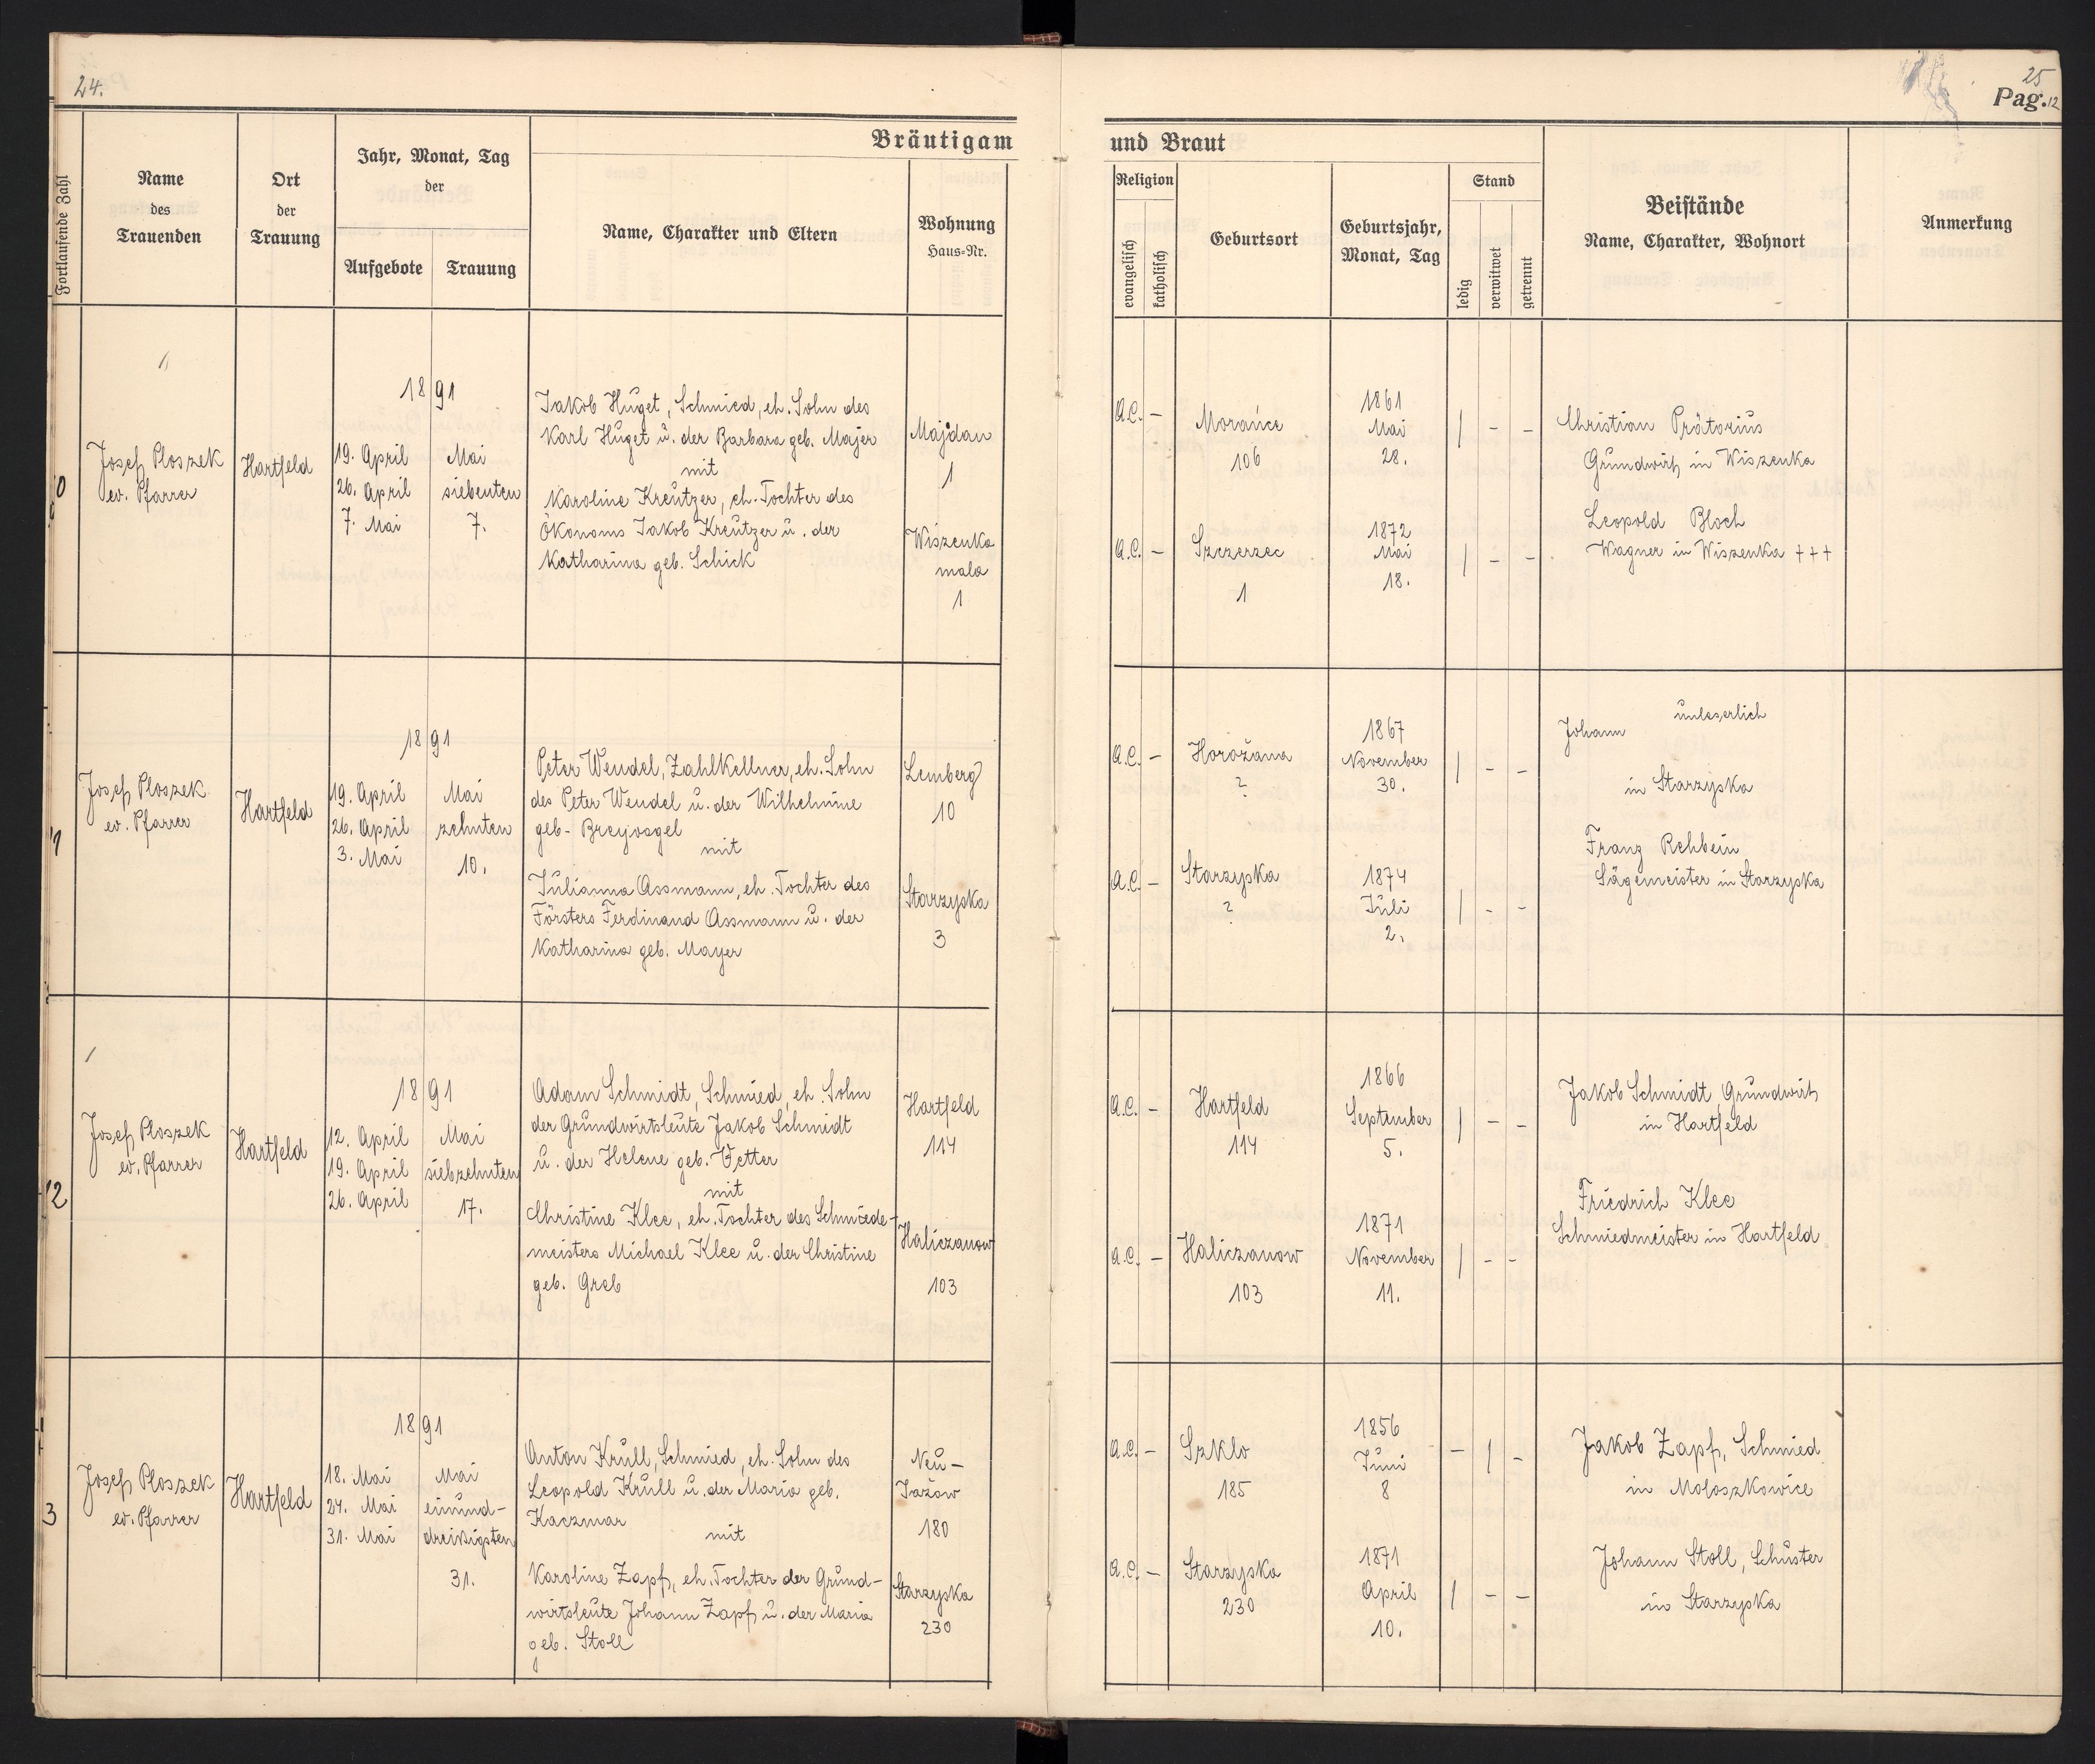 24.
25
Pag. 12
Bräutigam und Braut
Fortlaufende Zahl
Name
des
Trauenden
Ort
der
Trauung
Jahr, Monat, Tag
der
Aufgebote
Trauung
Name, Charakter und Eltern
Wohnung
Haus=Nr.
Religion
evangelisch
katholisch
Geburtsort
Geburtsjahr,
Monat, Tag
Stand
ledig
verwitwet
getrennt
Beistände
Name, Charakter, Wohnort
Anmerkung
0
Josef Ploszek
ev. Pfarrer
Hartfeld
1891
19. April
26. April
7. Mai
Mai
siebenten
7.
Jakob Huget, Schmied, eh. Sohn des
Karl Huget u. der Barbara geb. Majer
mit
Karoline Kreutzer, eh. Tochter des
Ökonoms Jakob Kreutzer u. der
Katharina geb. Schick
Majdan
1
Wiszenka
mala
1
A.C. –
Morańce
106
1861
Mai
28.
| – –
A.C. –
Szczerzec
1
1872
Mai
18.
| – –
Christian Prätorius
Grundwirth in Wiszenka
Leopold Bloch
Wagner in Wiszenka +++
1
Josef Ploszek
ev. Pfarrer
Hartfeld
1891
19. April
26. April
3. Mai
Mai
zehnten
10.
Peter Wendel, Zahlkellner, eh. Sohn
des Peter Wendel u. der Wilhelmine
geb. Breyvogel
mit
Julianna Assmann, eh. Tochter des
Försters Ferdinand Assmann u. der
Katharina geb. Mayer
Lemberg
10
Starzyska
3
A.C. –
Horožana
?
1867
November
30.
| – –
A.C. –
Starzyska
?
1874
Juli
2.
| – –
unleserlich
Johann
in Starzyska
Franz Rehbein
Sägemeister in Starzyska
12
Josef Ploszek
ev. Pfarrer
Hartfeld
1891
12. April
19. April
26. April
Mai
siebzehnten
17.
Adam Schmidt, Schmied, eh. Sohn
der Grundwirtsleute Jakob Schmidt
u. der Helene geb. Vetter
mit
Christine Klee, eh. Tochter des Schmiede-
meisters Michael Klee u. der Christine
geb. Greb
Hartfeld
114
Haliczanow
103
A.C. –
Hartfeld
114
1866
September
5.
| – –
A.C. –
Haliczanow
103
1871
November
11.
| – –
Jakob Schmidt Grundwirth
in Hartfeld
Friedrich Klee
Schmiedmeister in Hartfeld
3
Josef Ploszek
ev. Pfarrer
Hartfeld
1891
18. Mai
24. Mai
31. Mai
Mai
einund-
dreißigsten
31.
Anton Krull, Schmied, eh. Sohn des
Leopold Krull u. der Maria geb.
Kaczmar
mit
Karoline Zapf, eh. Tochter der Grund-
wirtsleute Johann Zapf u. der Maria
geb. Stoll
Neu-
Jažow
180
Starzyska
230
A.C. –
Szklo
185
1856
Juni
8
– | –
A.C. –
Starzyska
230
1871
April
10.
| – –
Jakob Zapf, Schmied
in Moloszkowice
Johann Stoll, Schuster
in Starzyska